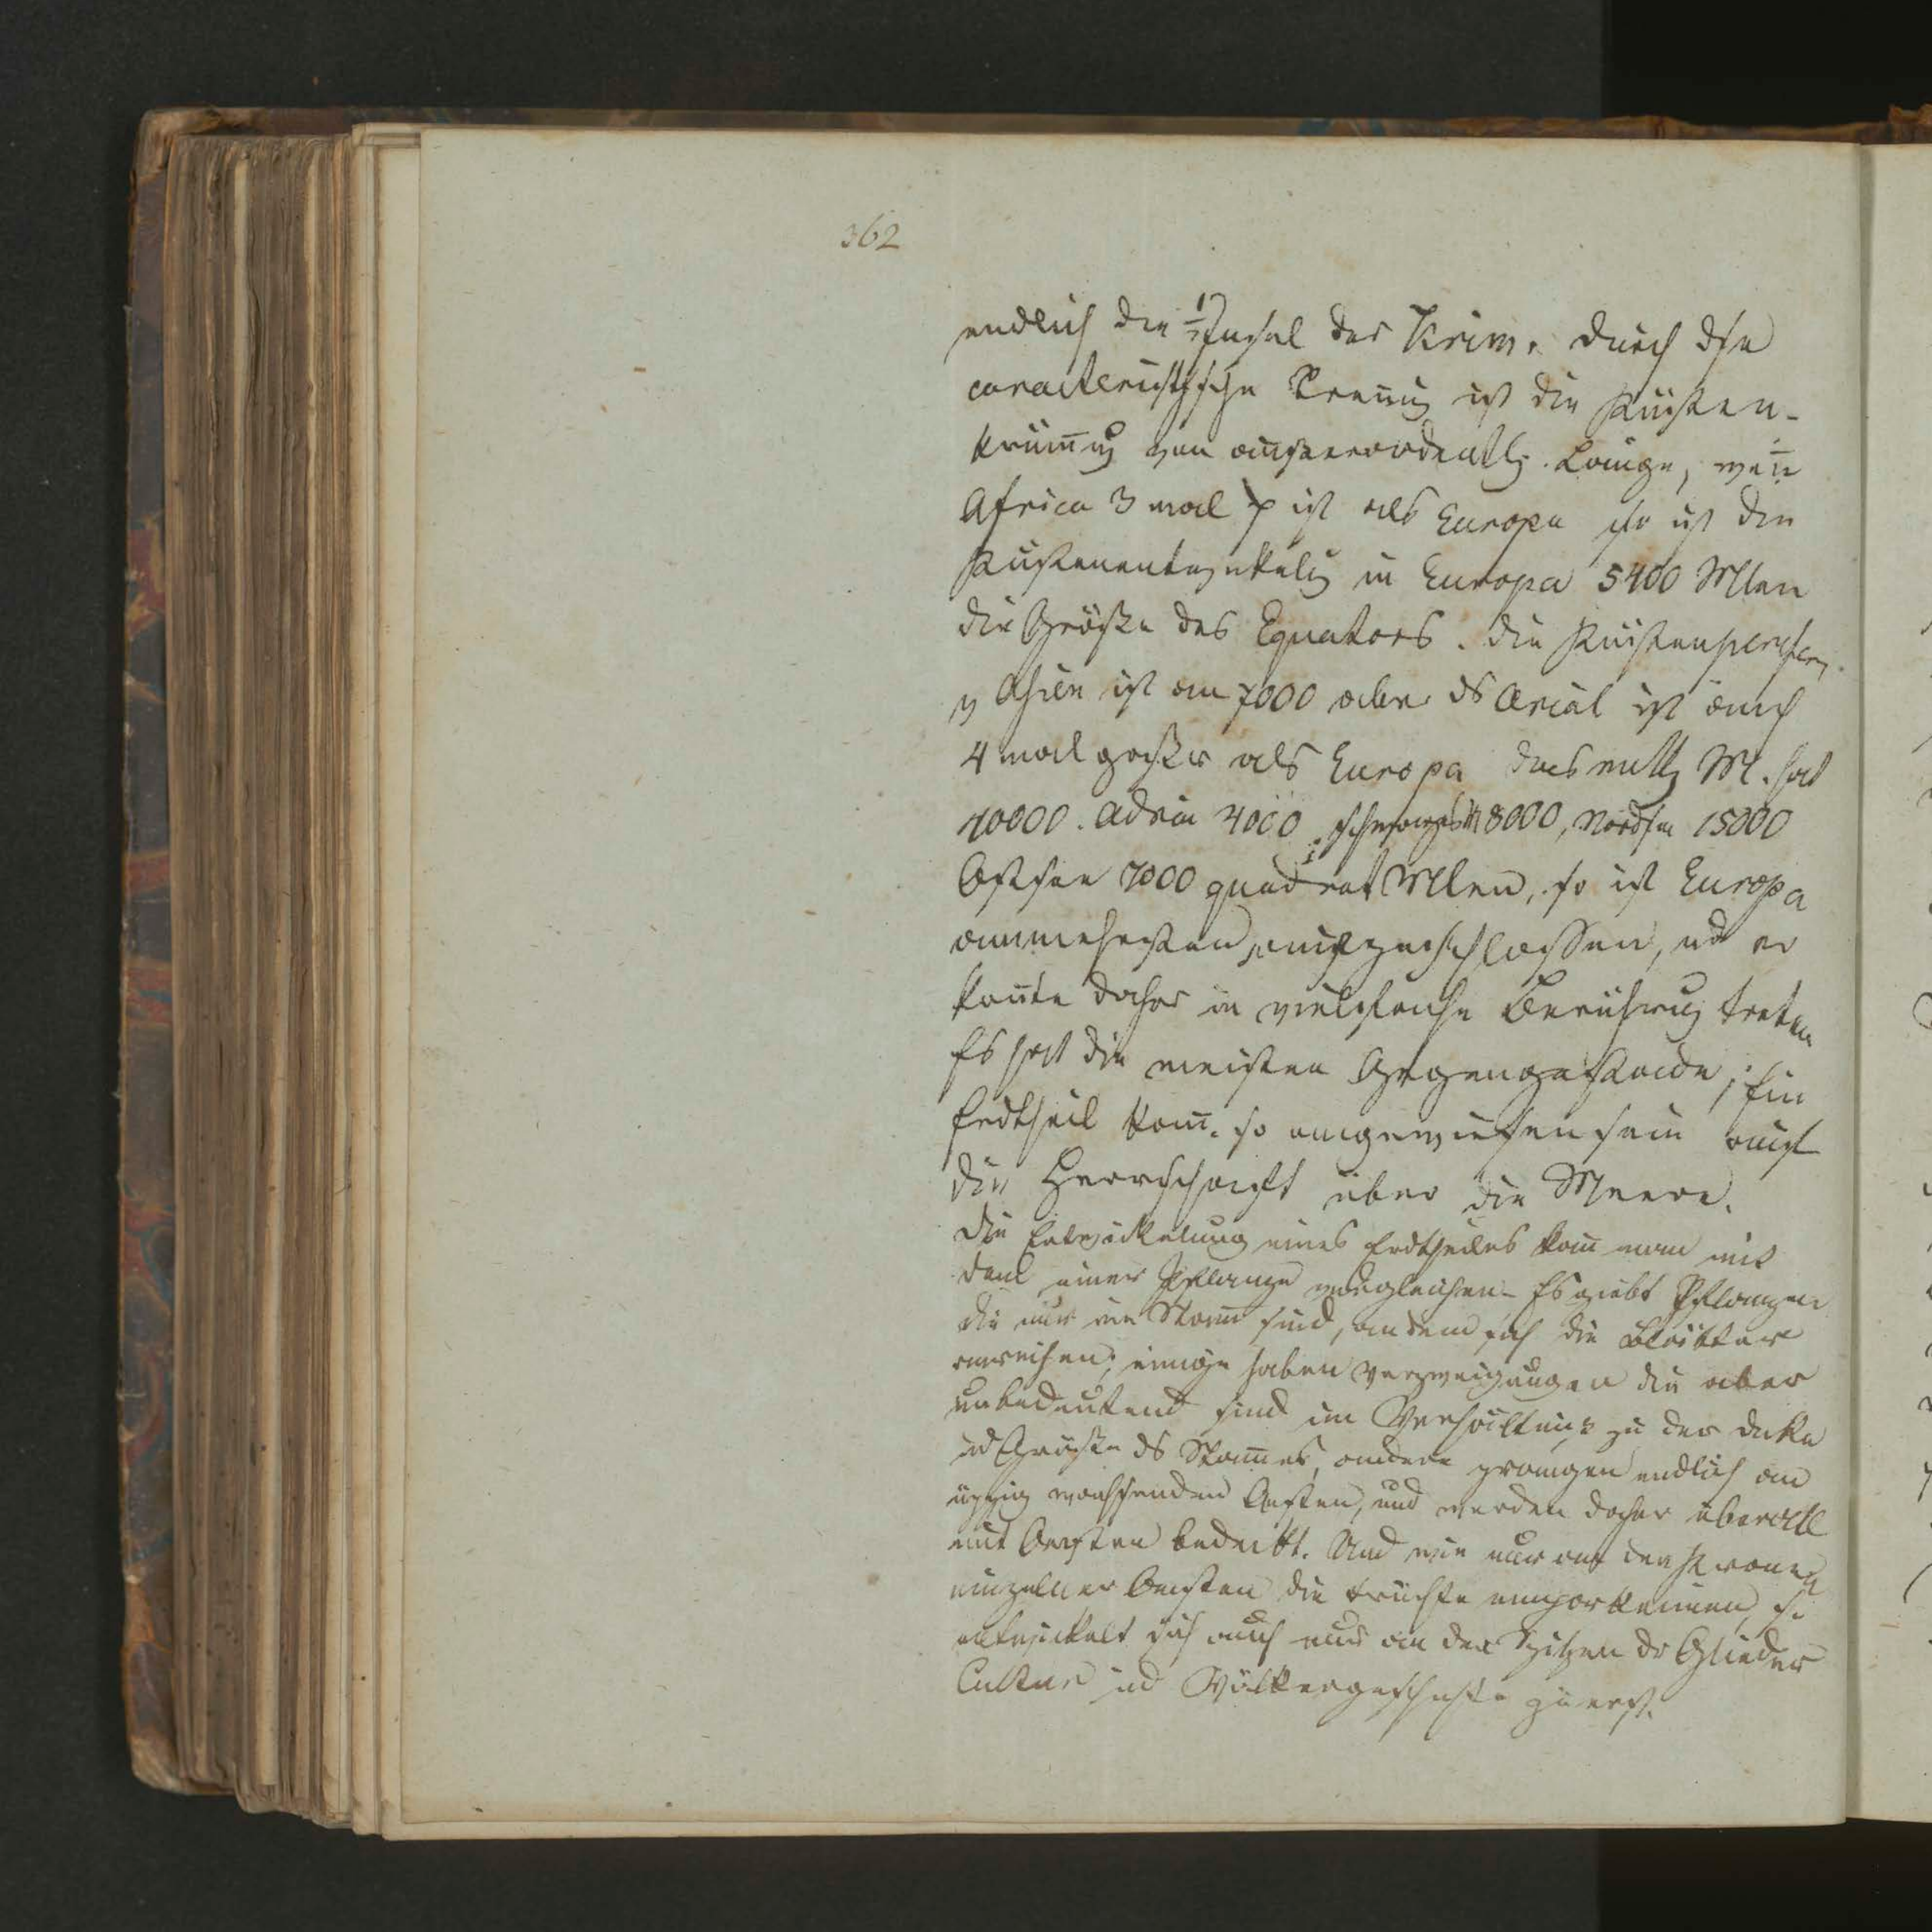 362
endlich die ½Insel der Krim. Durch dse
caracteristische Trennug ist die Küsten-
krümug von außerordentl. Länge, wen̄
Africa 3 mal ist als Europa so ist die
Küstenentwickelug in Europa 5400 Mlen
die Größe des Equators. die Küsten
v Asien ist an 7000 aber ds Areal ist auch
4 mal größer als Europa das mittl M. hat
10000. Adria 4000 schwarzes M 8000, Nordsee 15000
Ostsee 7000 quadrat Mlen, so ist Europa
am meisten aufgeschlossen, ud er
kon̄te daher in vielfache Berührug treten
Es hat die meisten Gegengestade, kein
Erdtheil kan̄ so angewiesen sein auf
die Herrschaft über die Meere.
Die Entwickelung eines Erdtheiles kan̄ man mit
der einer Pflanze vergleichen. Es giebt Pflanzen
die nur ein Stam̄ sind, an dem sich die Blätter
anreihen; einige haben Verzweigungen die aber
unbedeutend sind im Verhältniß zu der Dicke
ud Größe ds Stam̄es, andere prangen endlich an
üppig wachsenden Aesten, und werden daher überall
mit Aesten bedeckt. Und wie nur an den Kronen
einzelner Aesten die Früchte emporkeimen, so
entwickelt sich auch nur an den Spitzen dr Glieder
Cultur ud Völkergeschichte zuerst.